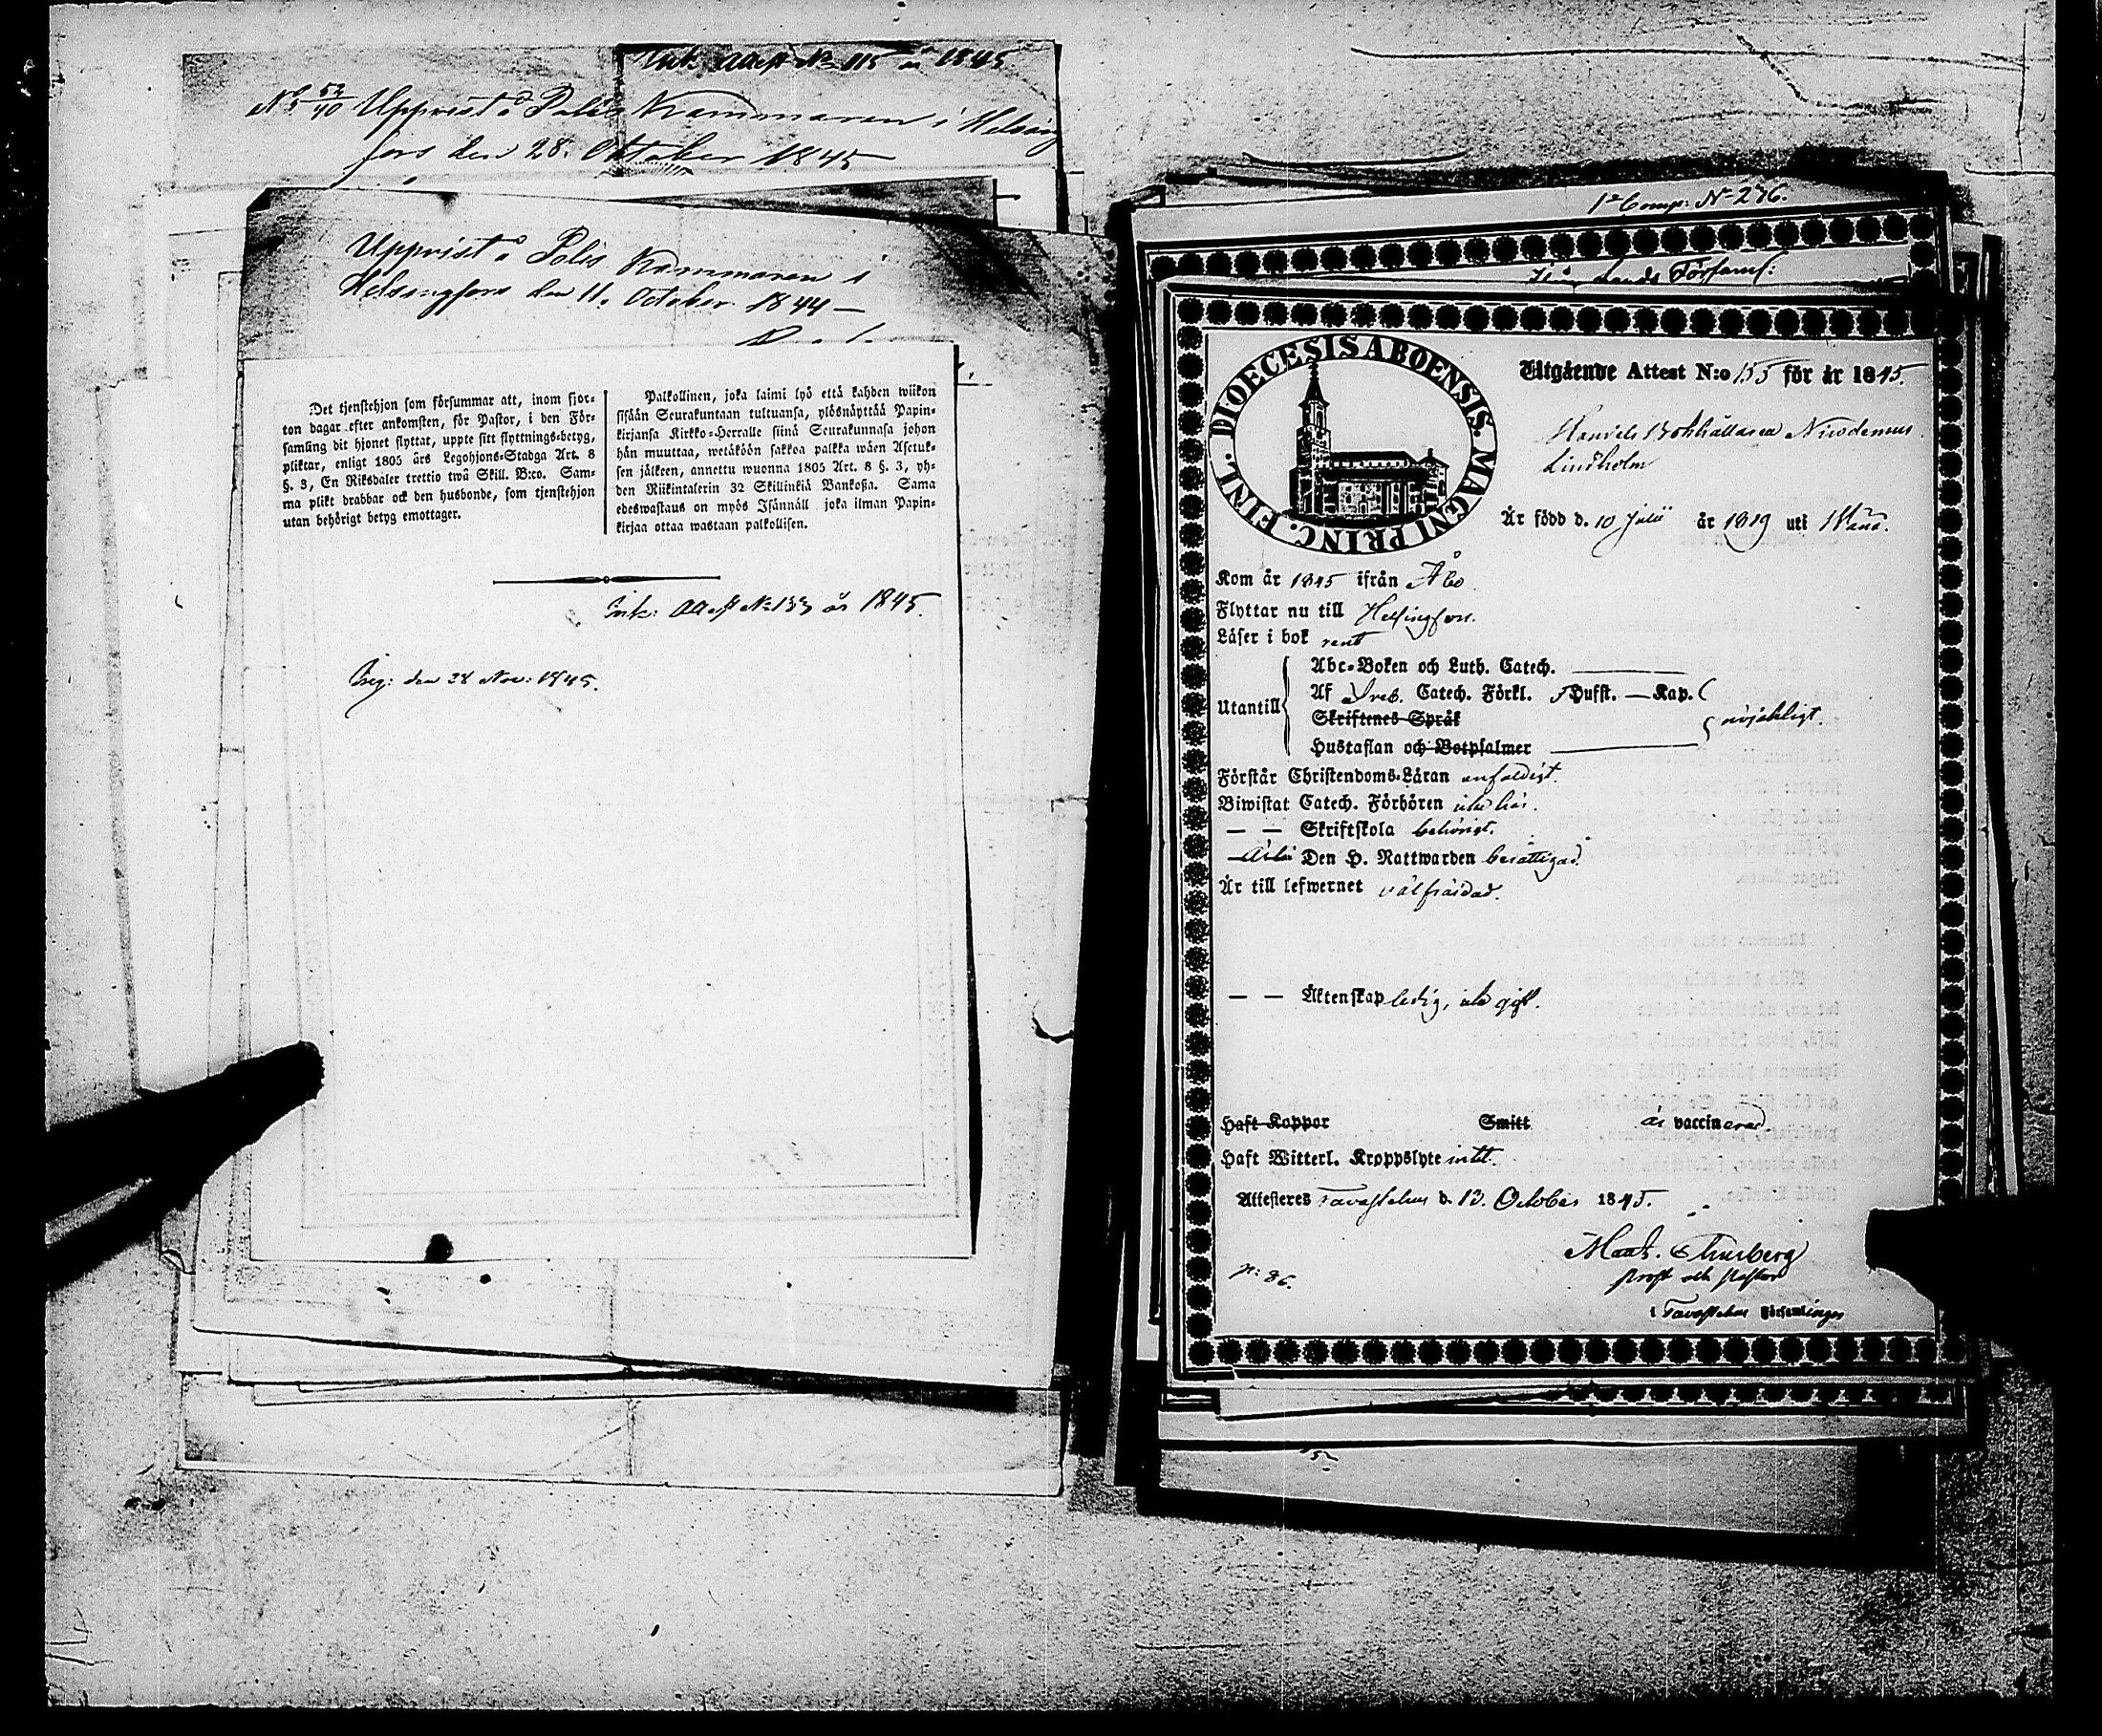 Ink: Attest No 115 år 1845.
No 52/40 Uppvist å Polis Kammaren i Helsing
fors den 28. Oktober 1845
Uppvist å Polis Kammaren i
Helsingfors den 11. October 1844 —
Det tjenstehjon som försummar att, inom fjor-
ton dagar efter ankomsten, för Pastor, i den För-
samling dit hjonet flyttat, uppte sitt flyttnings-betyg,
pliktar, enligt 1805 års Legohjons-Stadga Art. 8
§. 3, En Riksdaler trettio twå Skill. B:co. Sam-
ma plikt drabbar ock den husbonde, som tjenstehjon
utan behörigt betyg emottager.
Palkollinen, joka laimi lyö että kahden wiikon
sisään Seurakuntaan tultuansa, ylösnäyttää Papin-
kirjansa Kirkko-Herralle siinä Seurakunnasa johon
hän muuttaa, wetäköön sakkoa palkka wäen Asetuk-
sen jälkeen, annettu wuonna 1805 Art. 8 §. 3, yh-
den Riikintalerin 32 Skillinkiä Bankosa. Sama
edeswastaus on myös Isännäll joka ilman Papin-
kirjaa ottaa wastaan palkollisen.
Ink: Attest No 133 år 1845.
Ing: den 28 Nov: 1845.
1a Comp: No 276.
Lands Församl:
DIOECESIS ABOENSIS. MAGNI PRINC. FINL.
Utgående Attest N:o 155 för år 1845.
Handels Bokhållaren Nicodemus
Lindholm
Är född d. 10 Julii år 1819 uti Wånå.
Kom år 1845 ifrån Åbo
Flyttar nu till Helsingfors.
Läser i bok rent
Utantill
Abc-Boken och Luth. Catech.
Af Sveb. Catech. Förkl. Hufst. — Kap.
Skriftenes Språk
nöjaktigt.
Hustaflan och Botpsalmer
Förstår Christendoms-Läran enfaldigt.
Biwistat Catech. Förhören icke här.
— — Skriftskola behörigt.
Är till Den H. Nattwarden berättigad.
Är till lefwernet välfräjdad.
— — Äktenskap ledig, icke gift.
Haft Koppor Smitt är vaccinerad.
Haft Witterl. Kroppslyte intet.
Attesteres Tavastehus d. 13. October 1845.
p: 86.
Prost och Pastor
i Tavastehus Församlingar